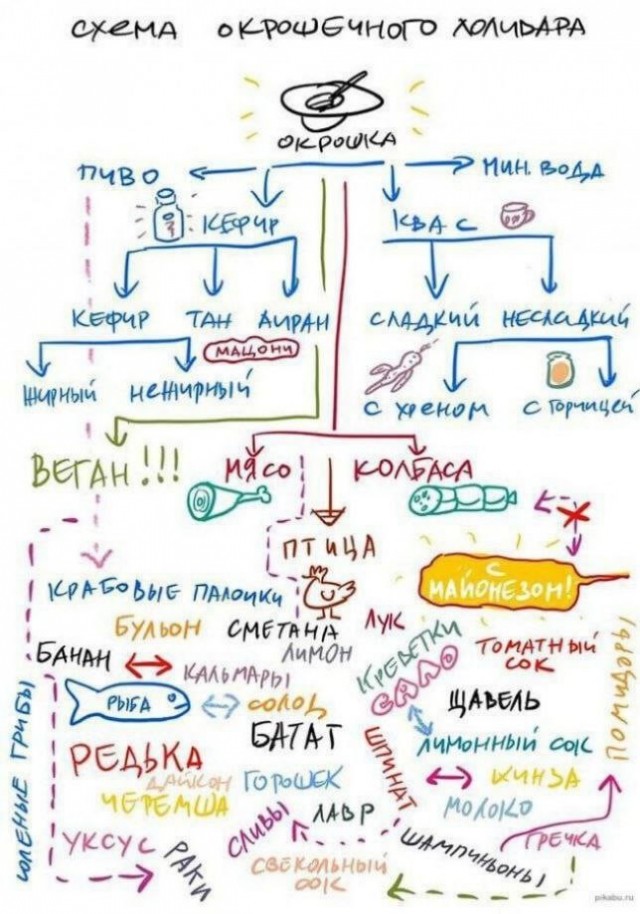 СХЕМА ОКРОШЕЧНОГО ХОЛИВАРА
ОКРОШКА
ПИВО
МИН. ВОДА
КЕФИР
КВАС
КЕФИР ТАН АЙРАН
СЛАДКИЙ НЕСЛАДКИЙ
МАЦОНИ
ЖИРНЫЙ НЕЖИРНЫЙ
С ХРЕНОМ С ГОРЧИЦЕЙ
ВЕГАН!!!
МЯСО
КОЛБАСА
ПТИЦА
С
МАЙОНЕЗОМ!
КРАБОВЫЕ ПАЛОЧКИ
БУЛЬОН
СМЕТАНА
ЛУК
ЛИМОН
БАНАН
КАЛЬМАРЫ
КРЕВЕТКИ
ТОМАТНЫЙ
СОК
САЛО
РЫБА
СОЛОД
ЩАВЕЛЬ
ПОМИДОРЫ
БАТАТ
РЕДЬКА
ШПИНАТ
ЛИМОННЫЙ СОК
ДАЙКОН
ГОРОШЕК
КИНЗА
ЧЕРЕМША
ЛАВР
МОЛОКО
СОЛЕНЫЕ ГРИБЫ
СЛИВЫ
УКСУС
РАКИ
ШАМПИНЬОНЫ
ГРЕЧКА
СВЕКОЛЬНЫЙ
СОК
pikabu.ru